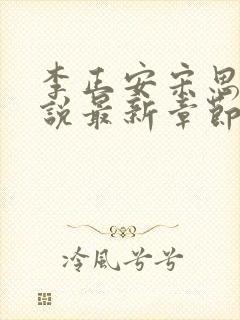 李正安宋思
說最新章節
冷風兮兮